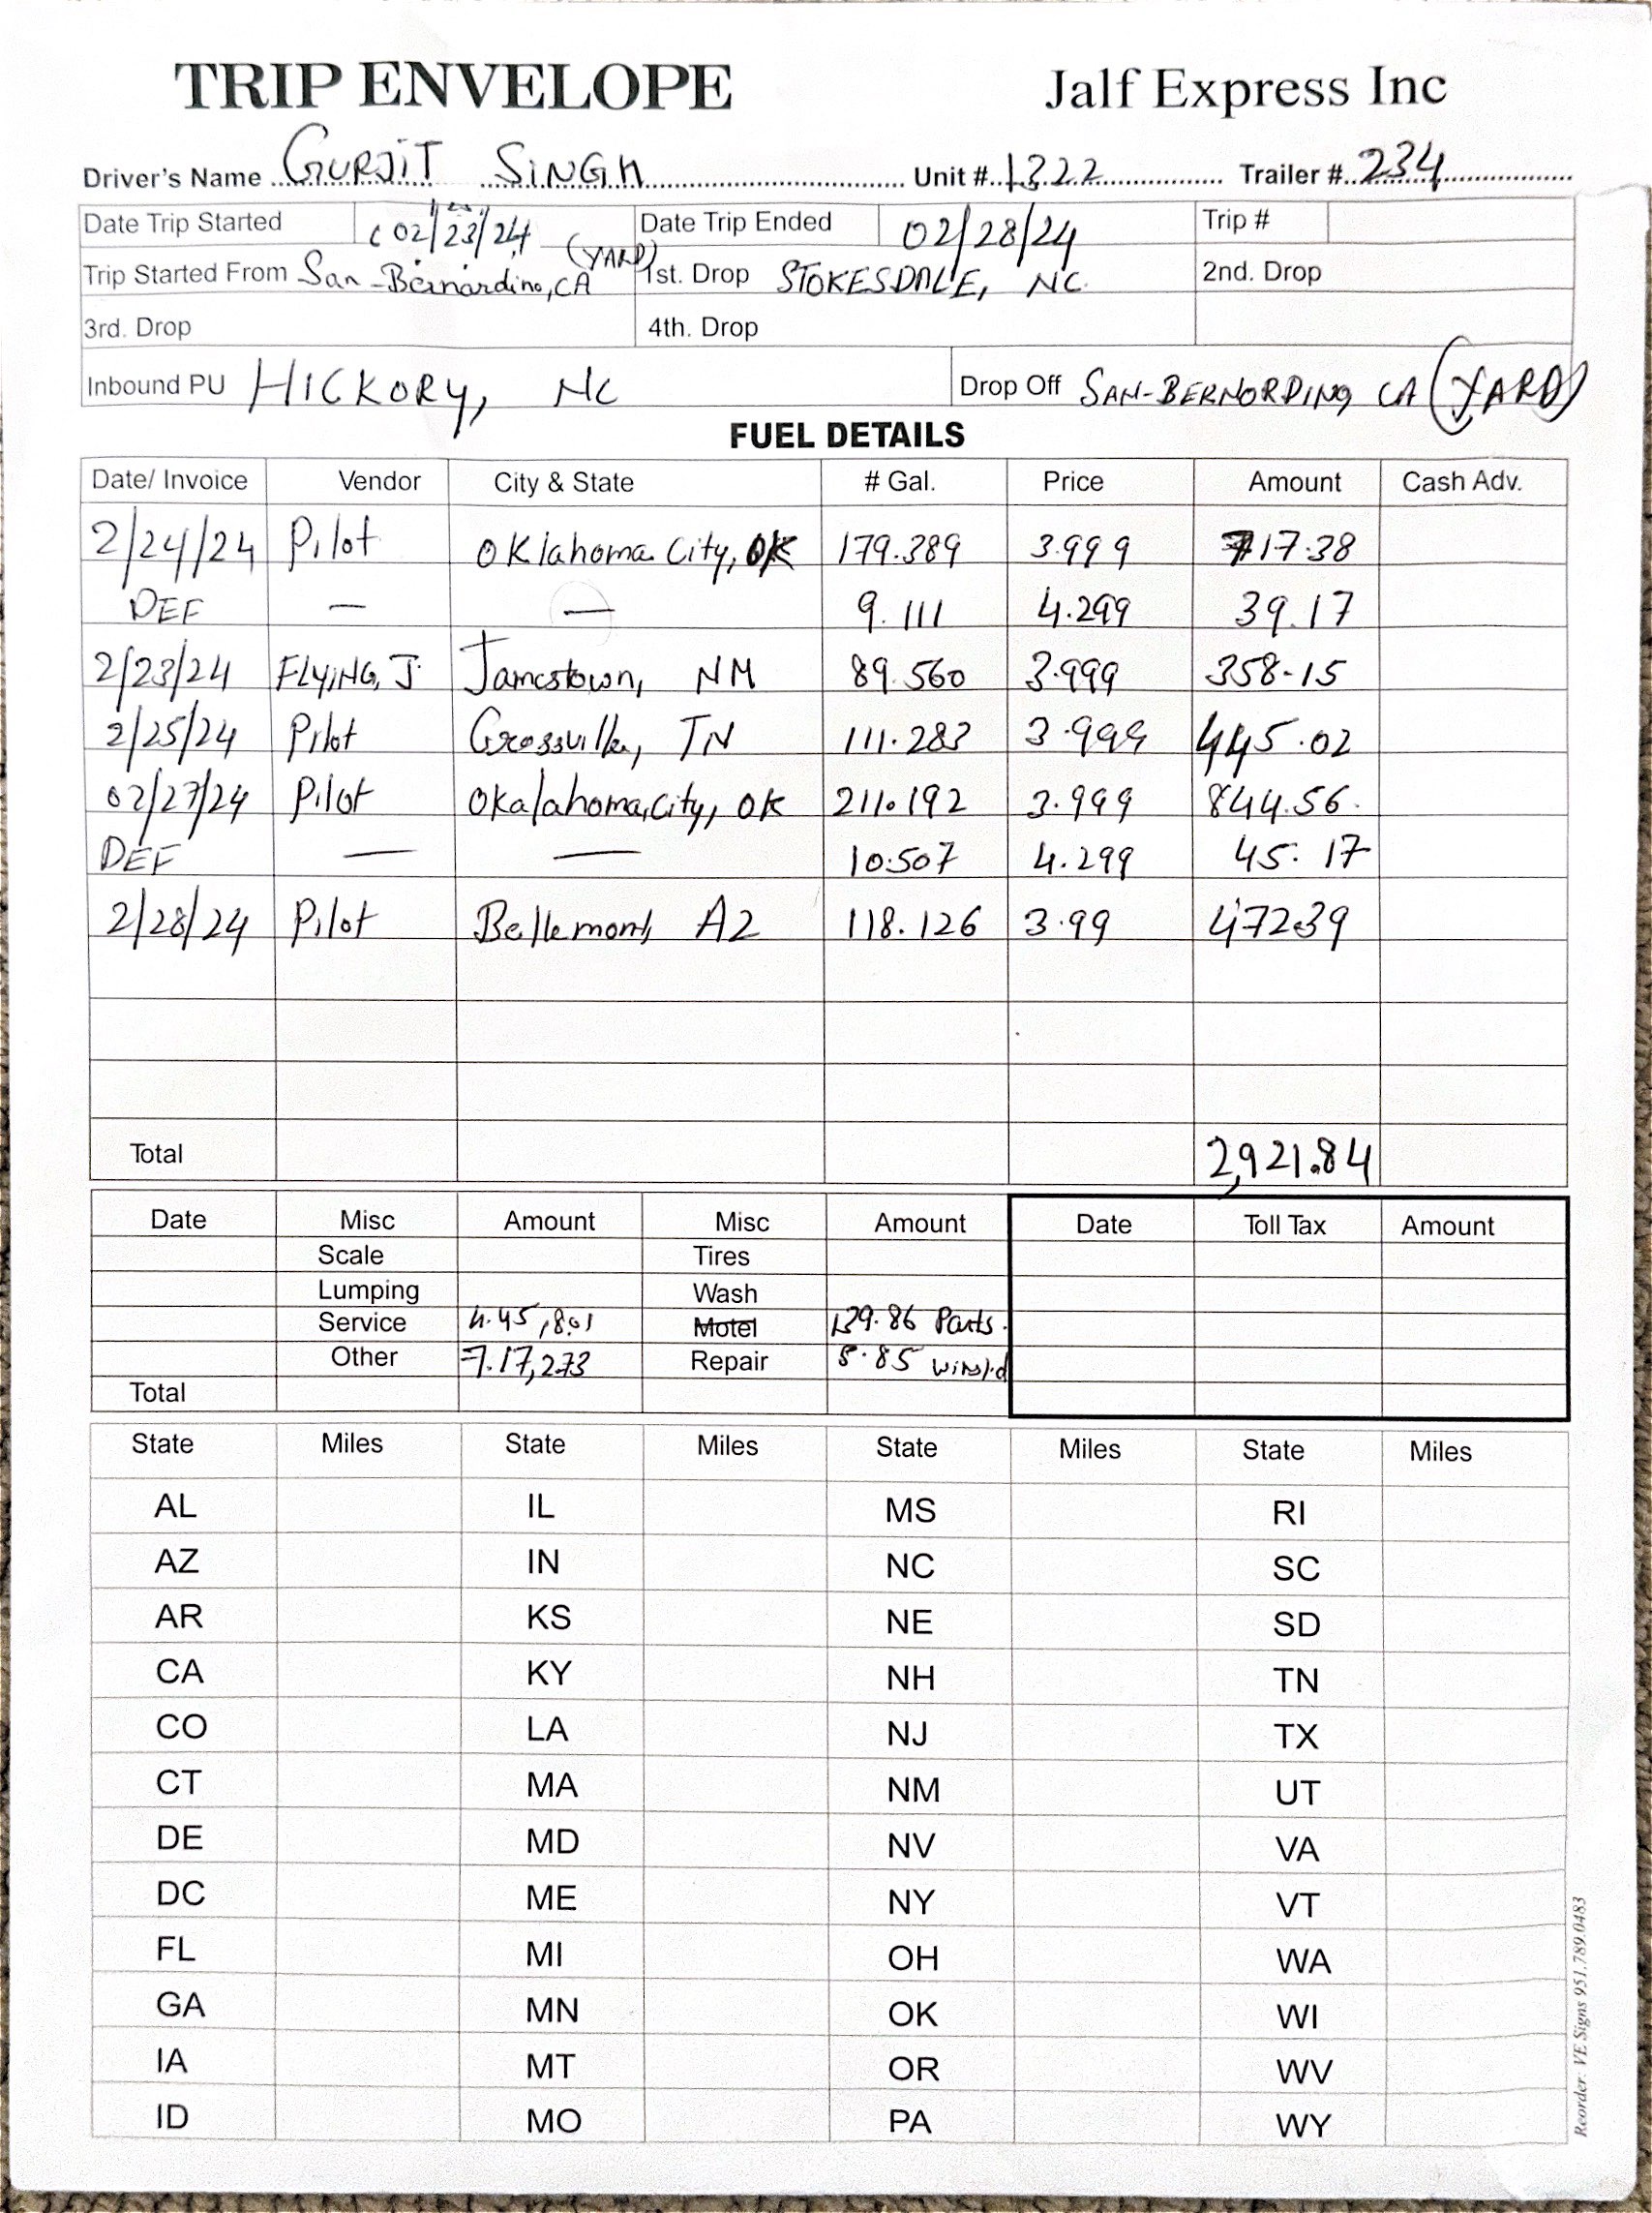 TRIP ENVELOPE Jalf Express Inc
Driver's Name GURJIT SINGH Unit # 1322 Trailer # 234
Date Trip Started 02/23/24 Date Trip Ended 02/28/24 Trip #
Trip Started From San-Bernardino, CA (YARD) 1st. Drop STOKESDALE, NC. 2nd. Drop
3rd. Drop 4th. Drop
Inbound PU HICKORY, NC Drop Off SAN-BERNORDINO, CA (YARD)
FUEL DETAILS
Date/ Invoice Vendor City & State # Gal. Price Amount Cash Adv.
2/24/24 Pilot OKlahoma City, OK 179.389 3.999 717.38
DEF — — 9.111 4.299 39.17
2/23/24 FLYING, J Jamestown, NM 89.560 3.999 358.15
2/25/24 Pilot Crossville, TN 111.283 3.999 445.02
02/27/24 Pilot Okalahoma, City, OK 211.192 3.999 844.56
DEF — — 10.507 4.299 45.17
2/28/24 Pilot Bellemont, AZ 118.126 3.99 472.39
Total 2,921.84
Date Misc Amount Misc Amount Date Toll Tax Amount
Scale Tires
Lumping Wash
Service 4.45, 8.01 Motel 139.86 Parts.
Other 7.17, 2.73 Repair 5.85
Total
State Miles State Miles State Miles State Miles
AL IL MS RI
AZ IN NC SC
AR KS NE SD
CA KY NH TN
CO LA NJ TX
CT MA NM UT
DE MD NV VA
DC ME NY VT
FL MI OH WA
GA MN OK WI
IA MT OR WV
ID MO PA WY
Reorder: VE Signs 951.789.0483